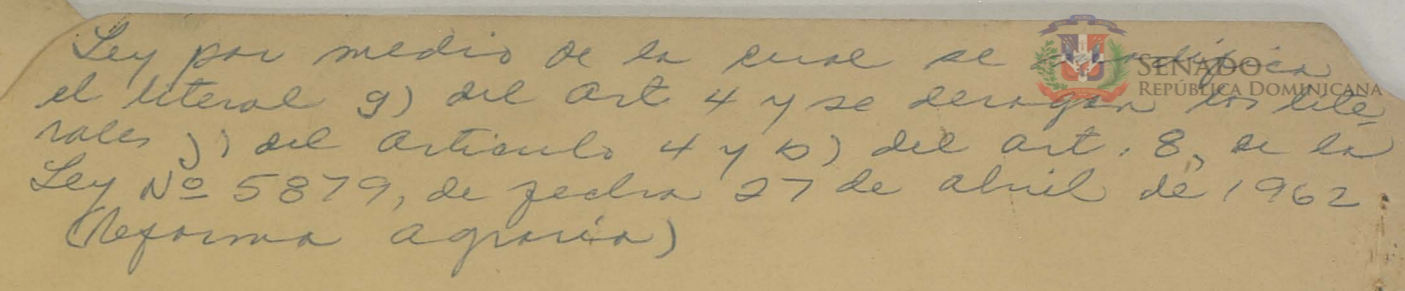 Ley por medio de la cual se modifica
el literal g) del Art 4 y se derogan los lite-
rales j) del Artículo 4 y b) del Art. 8, de la
Ley Nº 5879, de fecha 27 de abril de 1962
(Reforma agraria)
SENADO
REPÚBLICA DOMINICANA